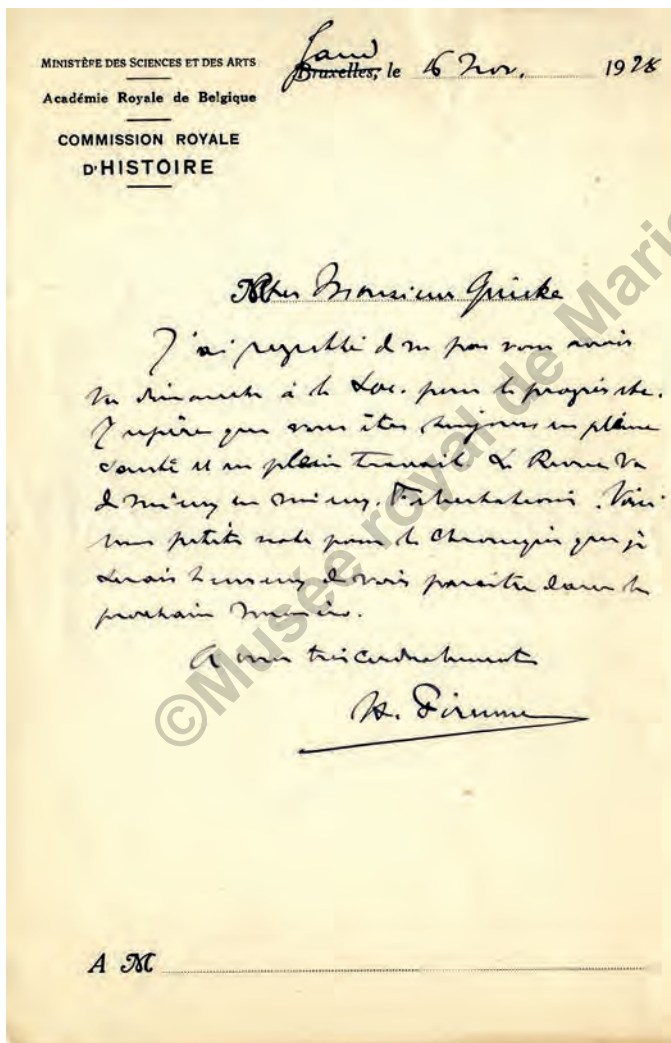 MINISTÈRE DES SCIENCES ET DES ARTS
Académie Royale de Belgique
COMMISSION ROYALE
D'HISTOIRE
Gand
Bruxelles, le 16 Nov. 1928
Cher Monsieur Quicke
J'ai regretté de ne pas vous avoir
vu dimanche à la Soc. pour le progrès etc.
J'espère que vous êtes toujours en pleine
santé et en plein travail. La Revue va
de mieux en mieux. Félicitations. Voici
une petite note pour la Chronique que je
serais heureux de voir paraître dans le
prochain numéro.
A vous très cordialement
H. Pirenne
A M
©Musée royal de Marie